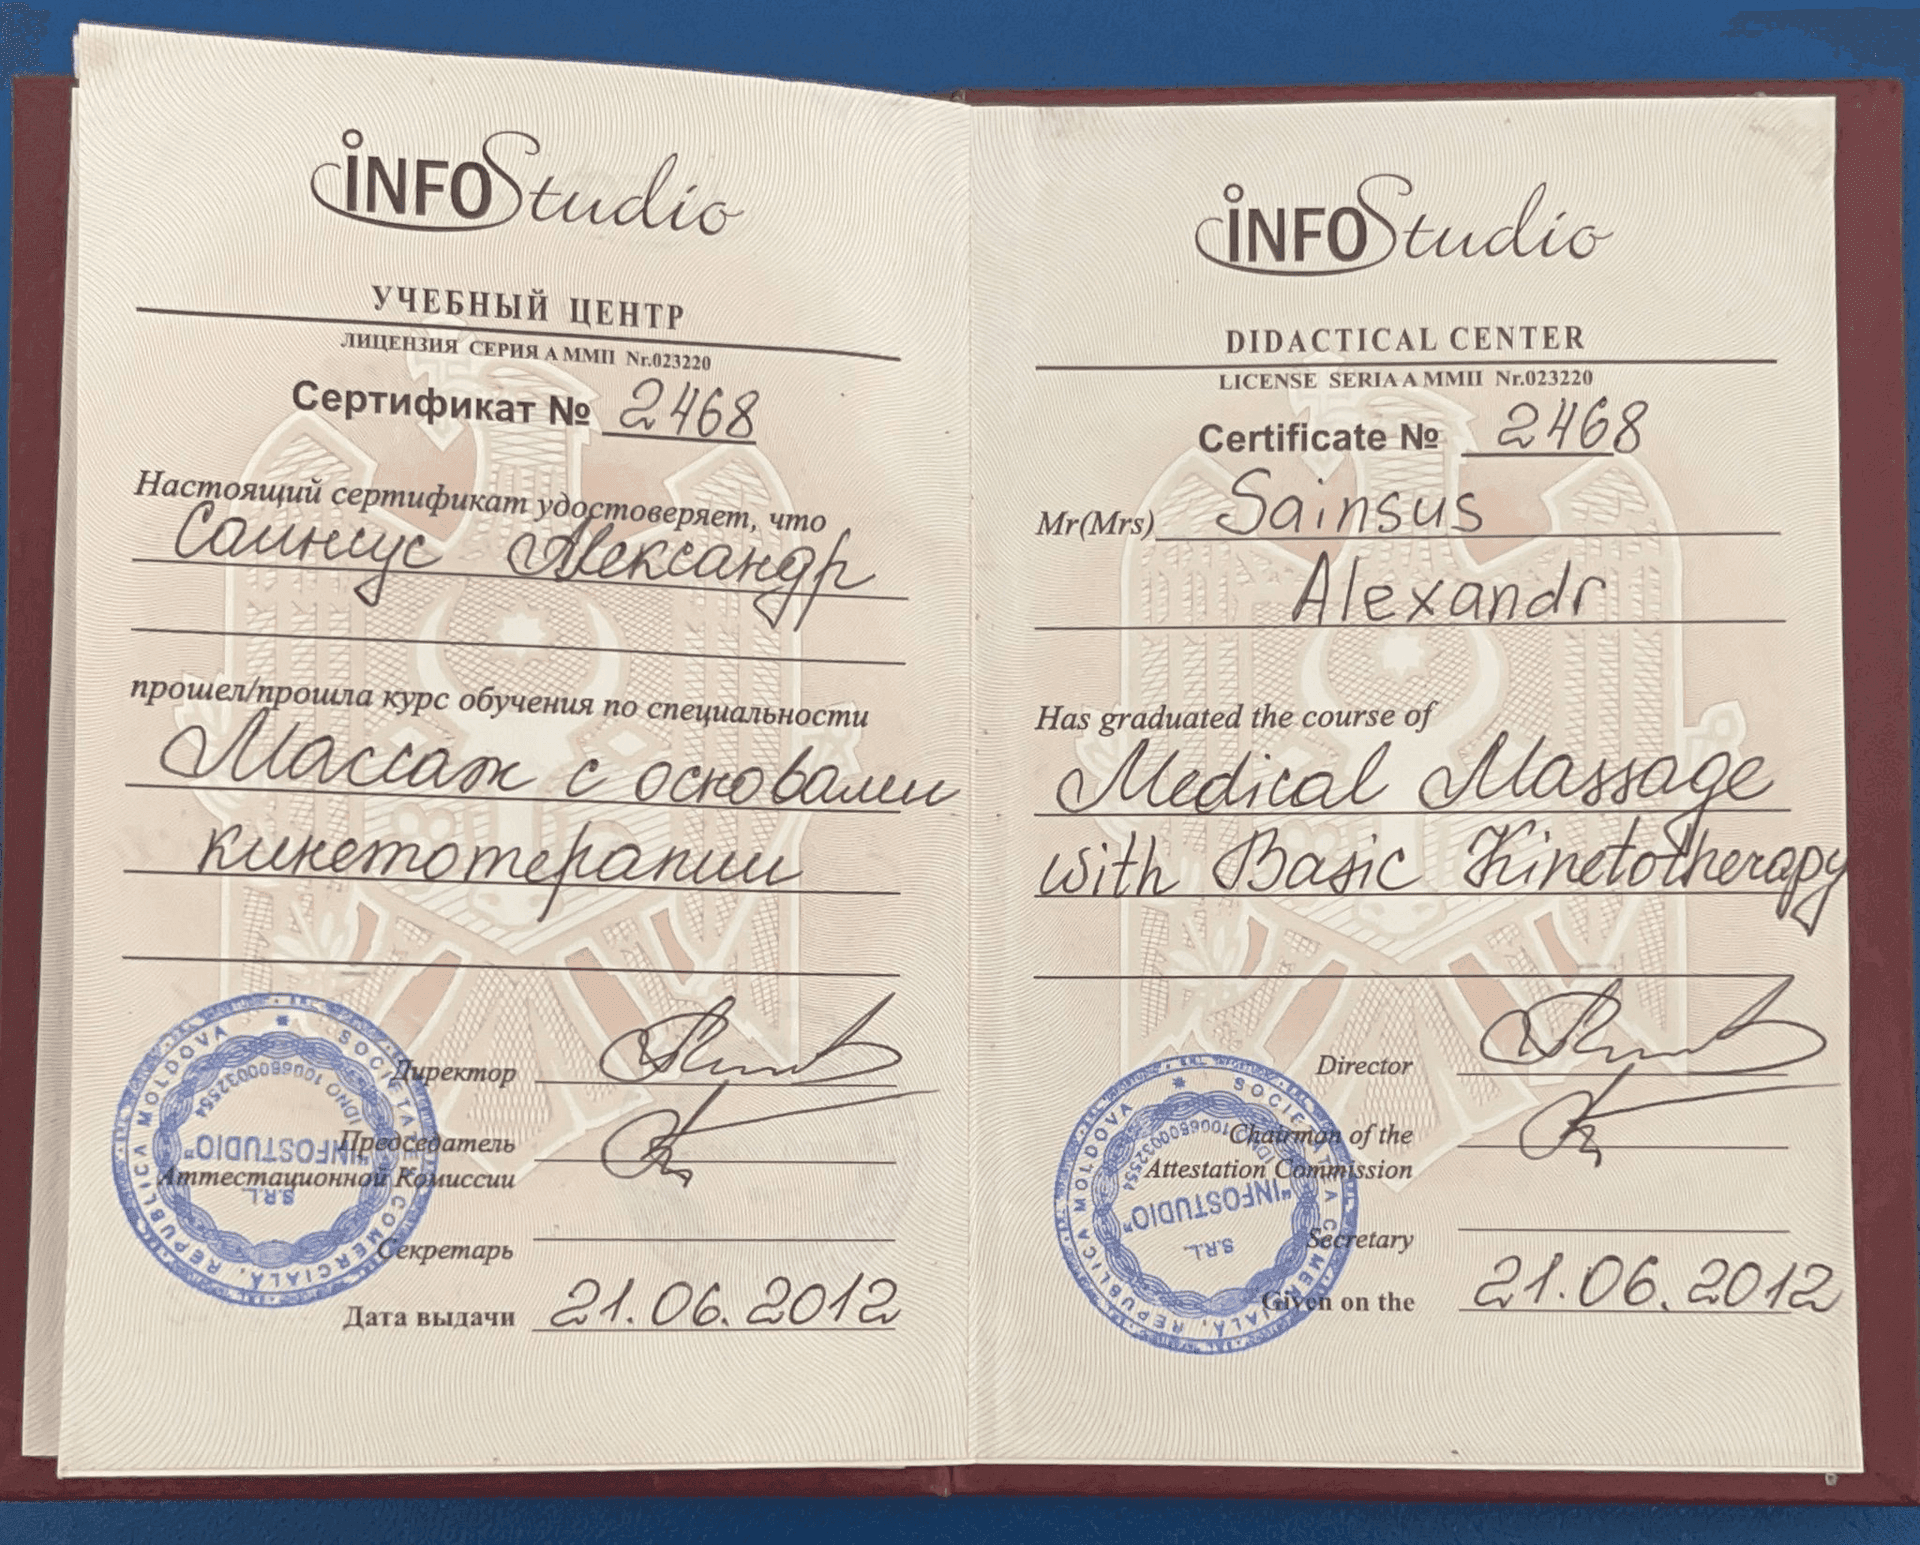 iNFOStudio
УЧЕБНЫЙ ЦЕНТР
ЛИЦЕНЗИЯ СЕРИЯ A MMII Nr.023220
Сертификат № 2468
Настоящий сертификат удостоверяет, что
Саинсус Александр
прошел/прошла курс обучения по специальности
Массаж с основами
кинетотерапии
Директор
Председатель
Аттестационной Комиссии
Секретарь
Дата выдачи 21.06.2012
REPUBLICA MOLDOVA * SOCIETATEA COMERCIALĂ
IDNO 1006600032554
"INFOSTUDIO"
S.R.L.
iNFOStudio
DIDACTICAL CENTER
LICENSE SERIA A MMII Nr.023220
Certificate № 2468
Mr(Mrs) Sainsus
Alexandr
Has graduated the course of
Medical Massage
with Basic Kinetotherapy
Director
Chairman of the
Attestation Commission
Secretary
Given on the 21.06.2012
REPUBLICA MOLDOVA * SOCIETATEA COMERCIALĂ
IDNO 1006600032554
"INFOSTUDIO"
S.R.L.